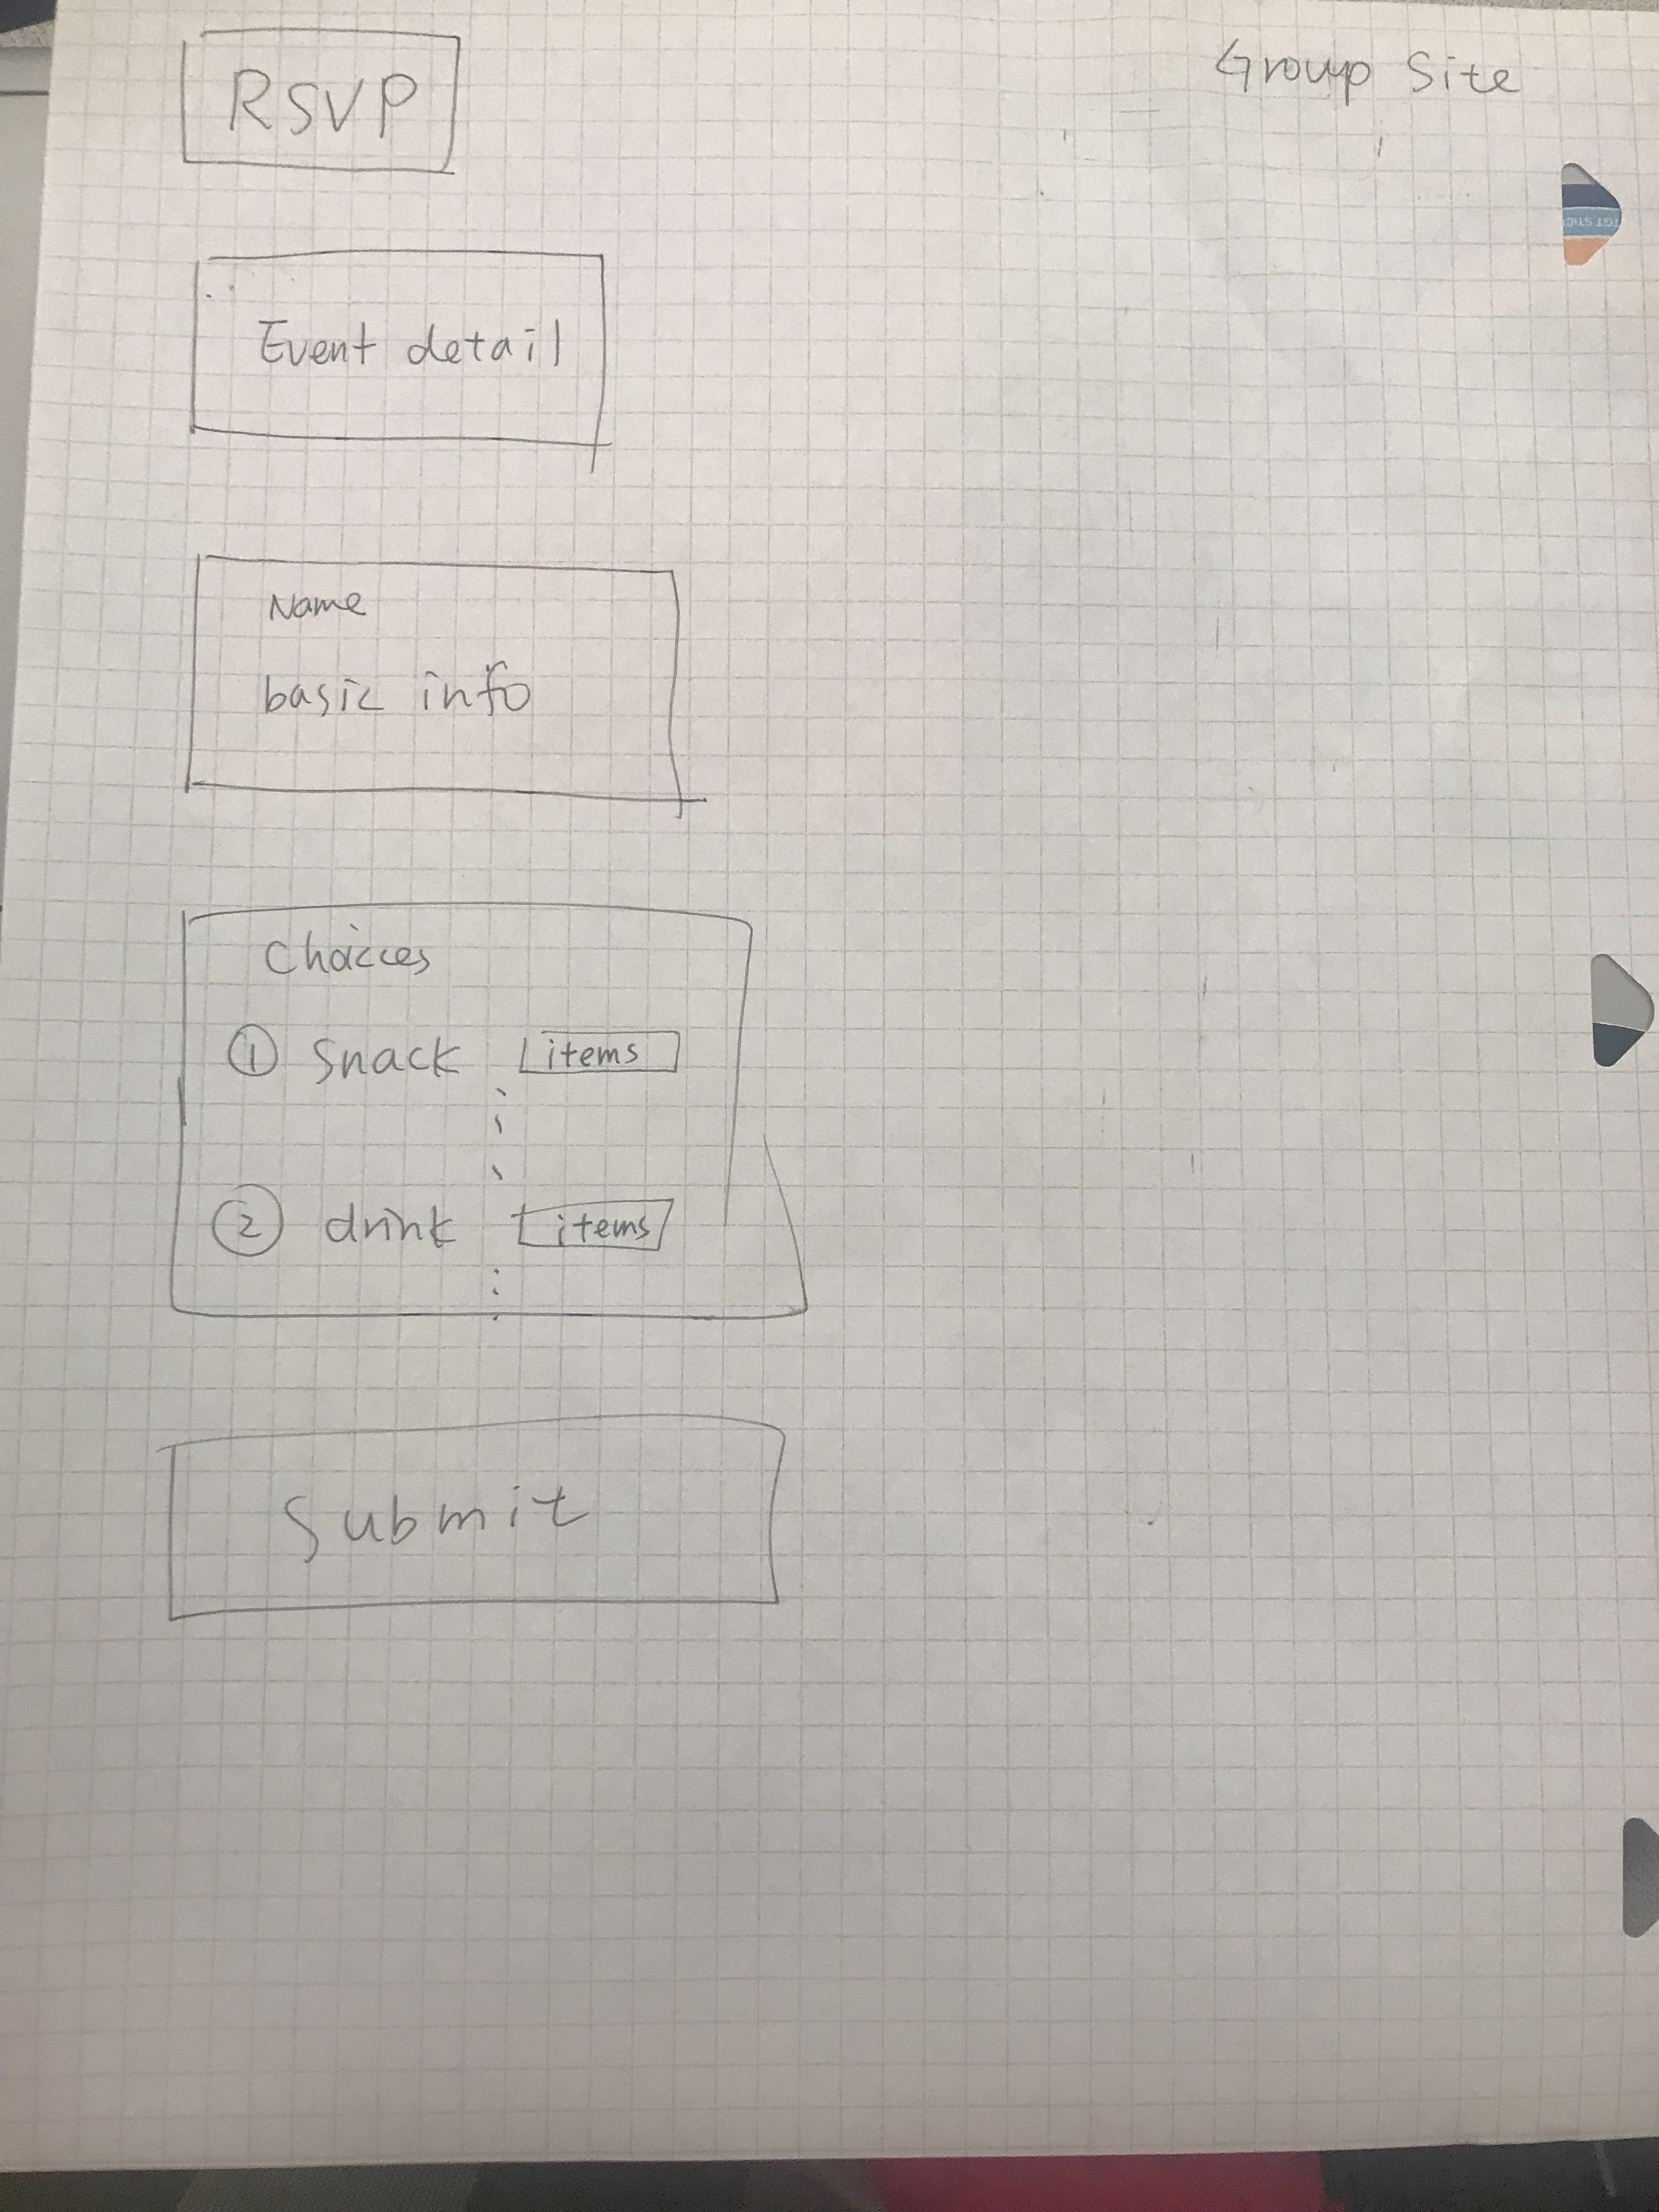 Group Site
RSVP
Event detail
Name
basic info
Choices
① Snack items
② drink items
Submit